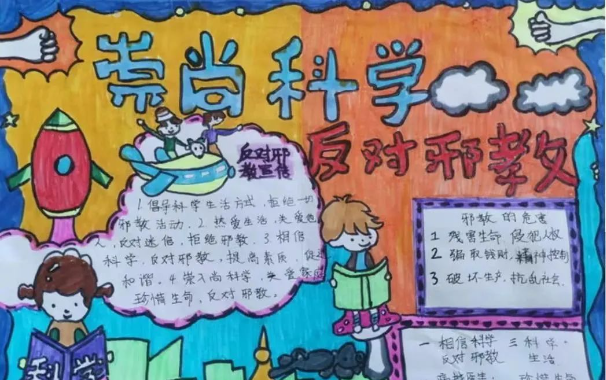 崇尚科学
反对邪教
反对邪
教宣传
1.倡导科学生活方式,拒绝一切
邪教活动.2.热爱生活,关爱他
人,反对迷信,拒绝邪教.3.相信
科学,反对邪教,提高素质,促进
和谐.4.崇尚科学,关爱家庭
珍惜生命,反对邪教.
邪教的危害
1 残害生命 侵犯人权
2 骗取钱财 精神控制
3 破坏生产,扰乱社会
科学
一 相信科学
反对邪教
三 科学
生活
珍惜生命